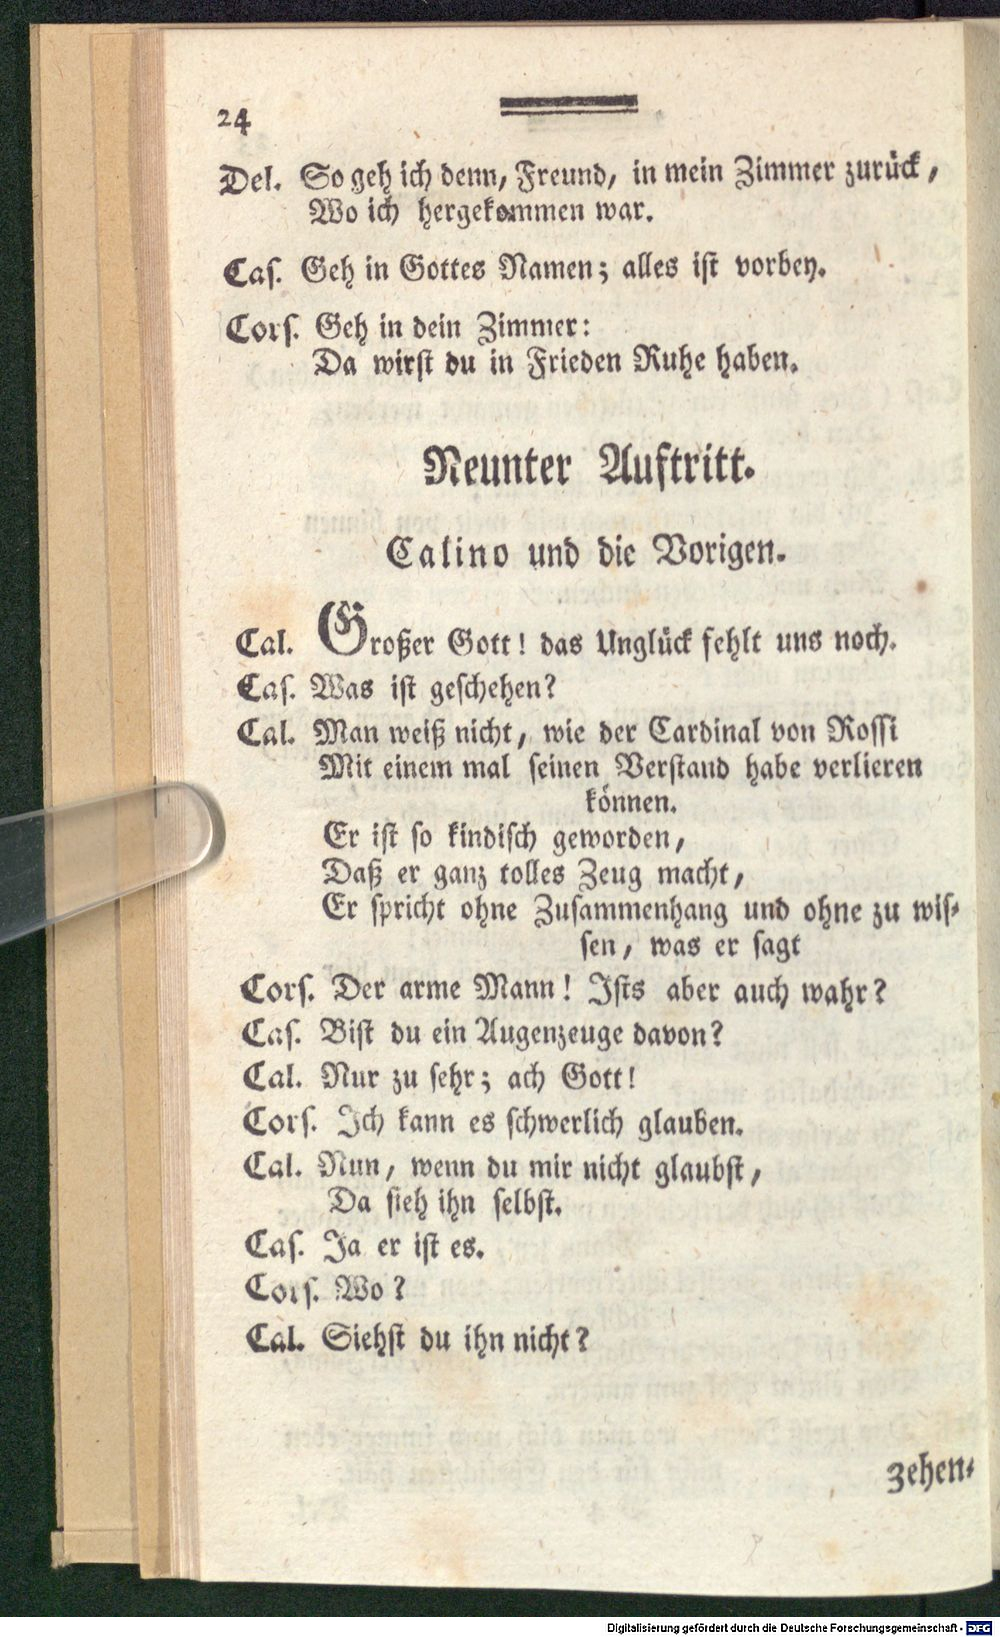 24
Del. So geh ich denn, Freund, in mein Zimmer zurück,
Wo ich hergekommen war.
Cas. Geh in Gottes Namen; alles ist vorbey.
Cors. Geh in dein Zimmer:
Da wirst du in Frieden Ruhe haben.
Neunter Auftritt.
Calino und die Vorigen.
Cal. Großer Gott! das Unglück fehlt uns noch.
Cas. Was ist geschehen?
Cal. Man weiß nicht, wie der Cardinal von Rossi
Mit einem mal seinen Verstand habe verlieren
können.
Er ist so kindisch geworden,
Daß er ganz tolles Zeug macht,
Er spricht ohne Zusammenhang und ohne zu wis-
sen, was er sagt
Cors. Der arme Mann! Ists aber auch wahr?
Cas. Bist du ein Augenzeuge davon?
Cal. Nur zu sehr; ach Gott!
Cors. Ich kann es schwerlich glauben.
Cal. Nun, wenn du mir nicht glaubst,
Da sieh ihn selbst.
Cas. Ja er ist es.
Cors. Wo?
Cal. Siehst du ihn nicht?
zehen-
Digitalisierung gefördert durch die Deutsche Forschungsgemeinschaft - DFG